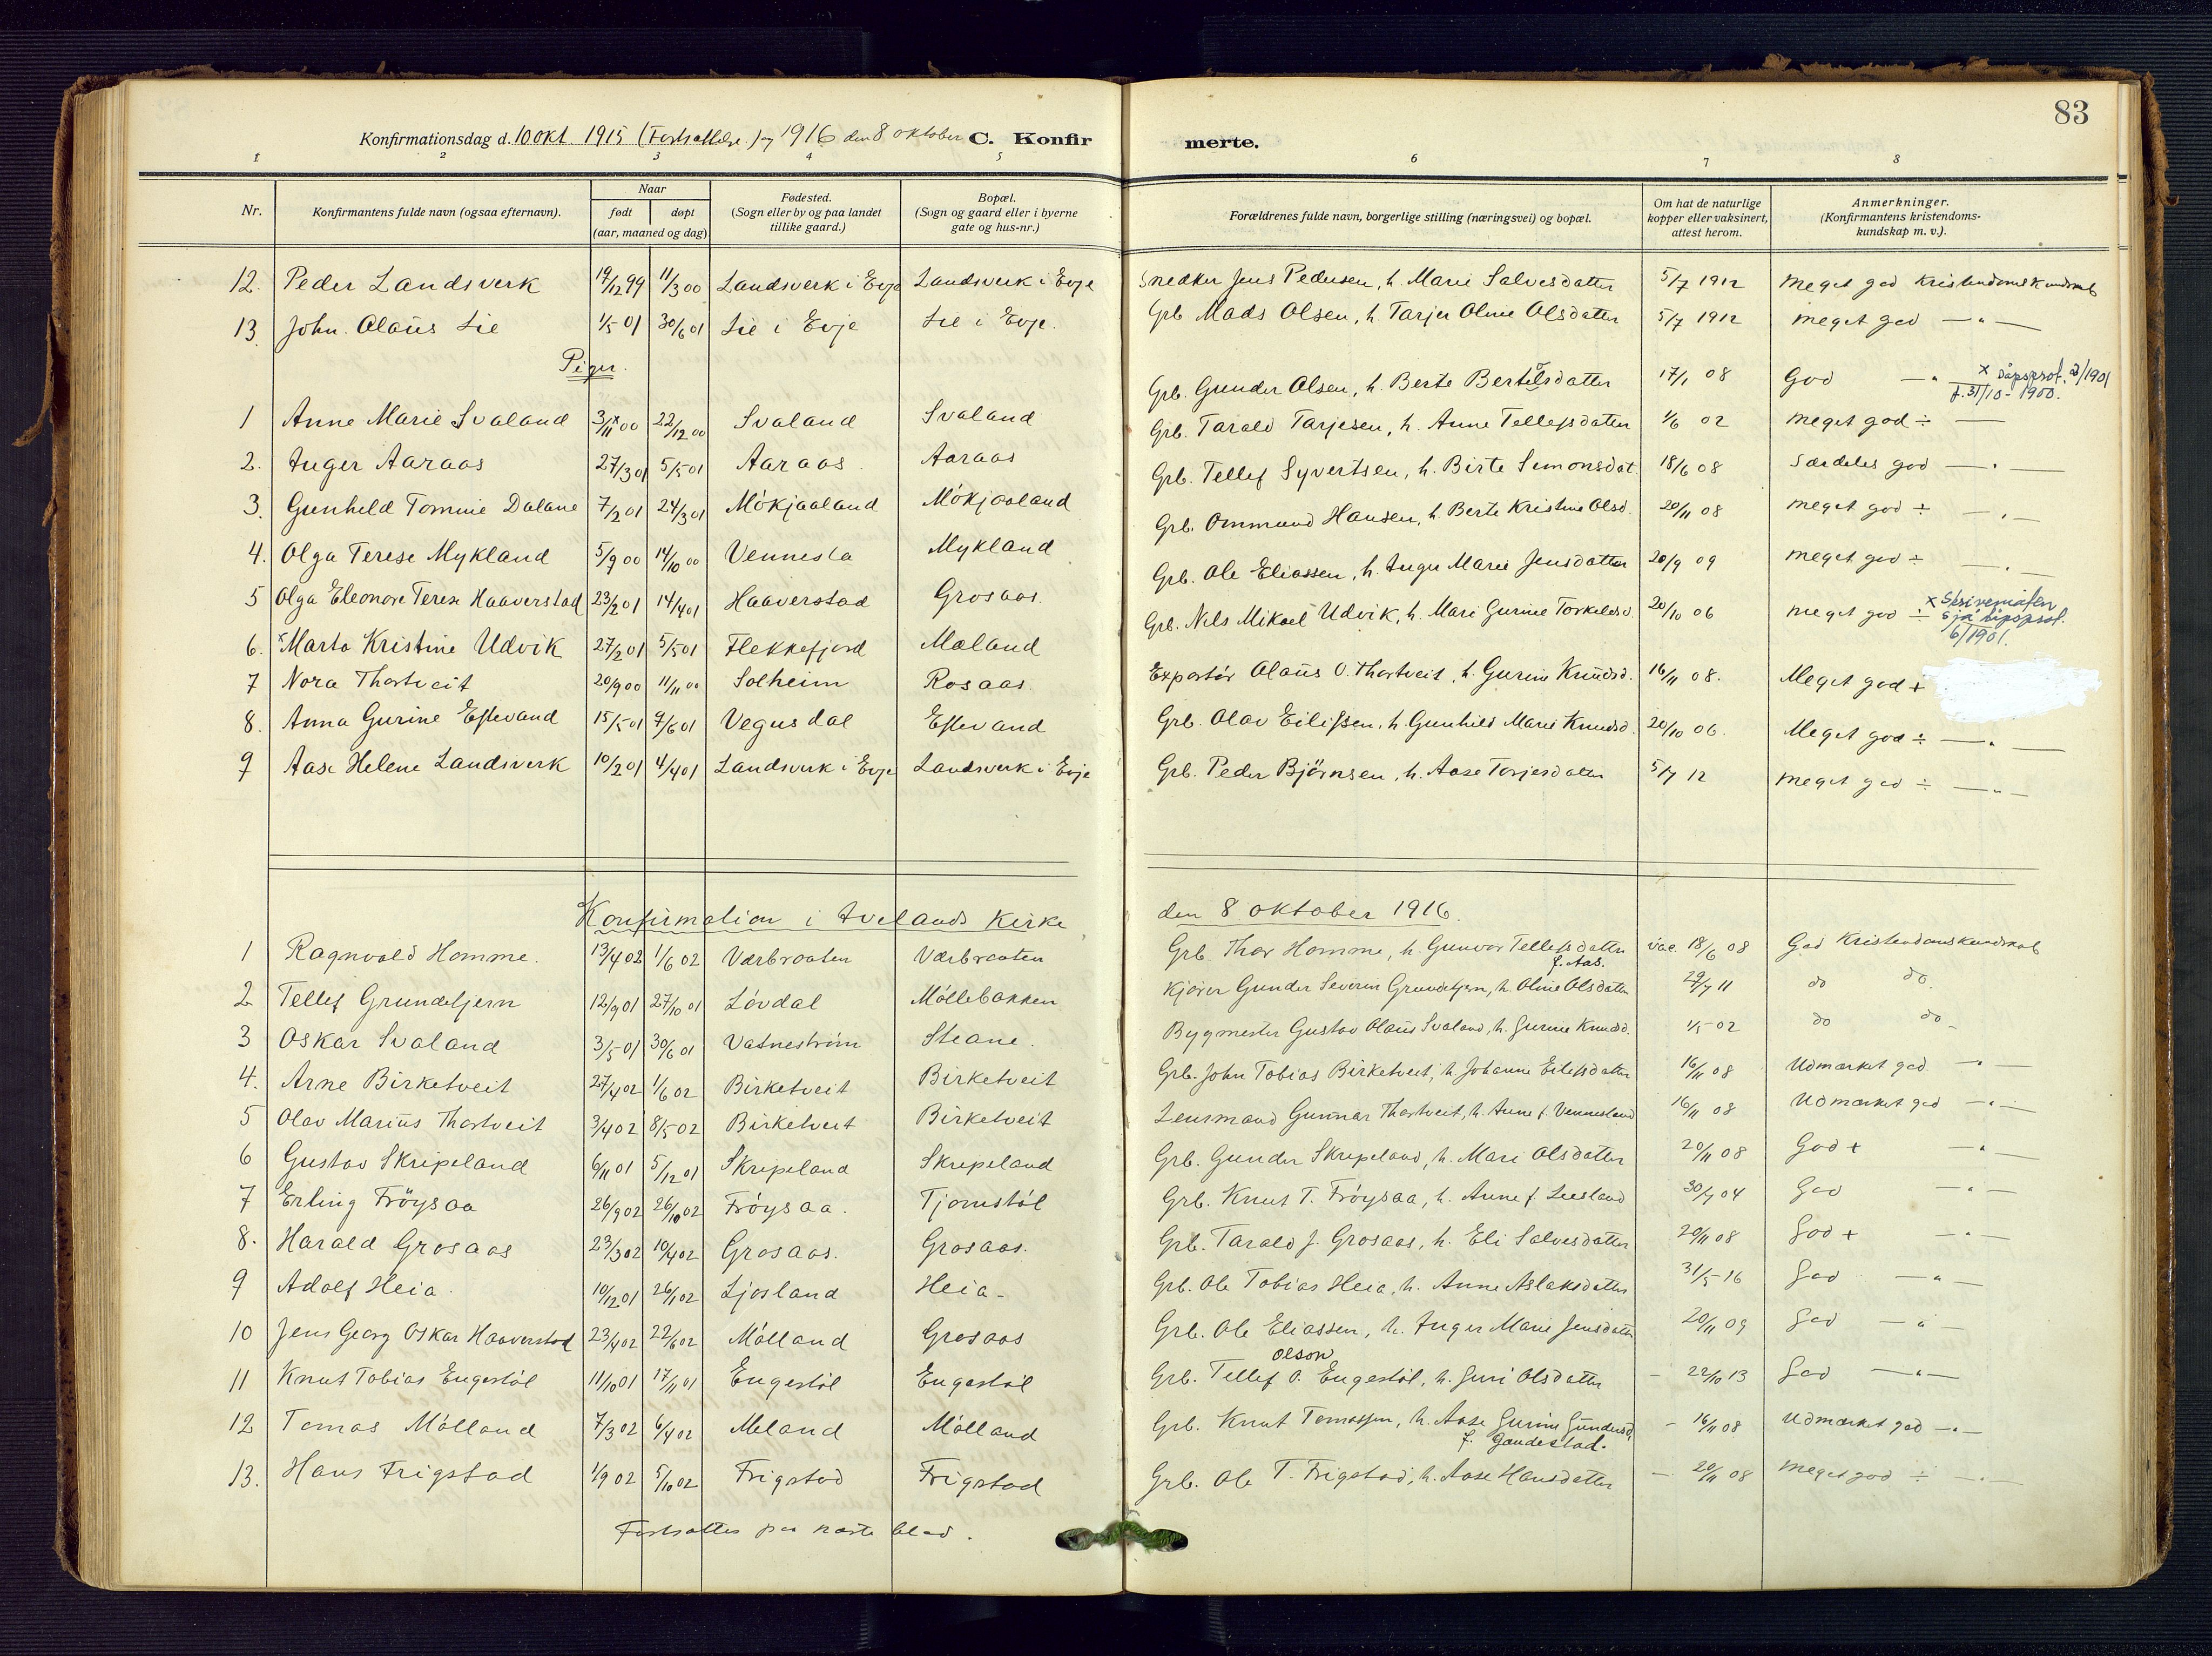 83
Konfirmationsdag d. 10 okt. 1915 (Fortsættelse) og 1916 den 8 oktober C. Konfirmerte.
1 2 3 4 5 6 7 8
Nr. Konfirmantens fulde navn (ogsaa efternavn). Naar født døpt (aar, maaned og dag) Fødested. (Sogn eller by og paa landet tillike gaard.) Bopæl. (Sogn og gaard eller i byerne gate og hus-nr.) Forældrenes fulde navn, borgerlige stilling (næringsvei) og bopæl. Om hat de naturlige kopper eller vaksinert, attest herom. Anmerkninger. (Konfirmantens kristendoms-kundskap m. v.).
12. Peder Landsverk 19/12 99 11/3 00 Landsverk i Evje Landsverk i Evje Snedker Jens Pedersen, h. Marie Salvesdatter 5/7 1912 Meget god Kristendomskundskab
13. John Olaus Lie 1/5 01 30/6 01 Lie i Evje Lie i Evje. Grb Mads Olsen, h. Tarjer Oline Olsdatter 5/7 1912 meget god — " —
Piger.
1 Anne Marie Svaland 3/11 x 00 22/12 00 Svaland Svaland Grb. Gunder Olsen, h. Berte Bertelsdatter 17/1 08 God — " x dåpsprot. 2/1901 f. 31/10 - 1900.
2. Inger Aaraas 27/3 01 5/5 01 Aaraas Aaraas Grb. Tarald Tarjesen, h. Anne Tellefsdatter 1/6 02 meget god ÷ —
3. Gunhild Tomine Dalane 7/2 01 24/3 01 Mökjaaland Mökjaaland Grb. Tellef Syvertsen, h. Birte Simonsdat. 18/6 08 Særdeles god — " —
4. Olga Terese Mykland 5/9 00 14/10 00 Vennesla Mykland Grb. Ommund Hansen, h. Berte Kristine Olsd. 20/11 08 meget god ÷ — " —
5 Olga Eleonore Terese Haaverstad 23/2 01 14/4 01 Haaverstad Grosaas Grb. Ole Eliassen, h. Inger Marie Jensdatter 20/9 09 meget god ÷ — " —
6. x Marta Kristine Udvik 27/2 01 5/5 01 Flekkefjord Mæland Grb. Nils Mikael Udvik, h. Mari Gurine Torkelsd. 20/10 06 meget god ÷ x Skrivemåten sjå dåpsprot. 6/1901.
7 Nora Thortveit 20/9 00 11/11 00 Solheim Rosaas. Exportör Olaus O. Thortveit, h. Gurine Knudsd. 16/11 08. Meget god +
8. Anna Gurine Eftevand 15/5 01 9/6 01 Vegusdal Eftevand Grb. Olav Eilifsen, h. Gunhild Marie Knudsd. 20/10 06. Meget god ÷ — " —
9 Aase Helene Landsverk 10/2 01 4/4 01 Landsverk i Evje Landsverk i Evje Grb. Peder Björnsen, h. Aase Torjesdatter 5/7 12 meget god ÷ — " —
Konfirmation i Ivelands Kirke den 8 oktober 1916.
1 Ragnvald Homme. 13/4 02 1/6 02 Værbraaten Værbraaten Grb. Thor Homme, h. Gunvor Tellefsdatter f. Aas. vac. 18/6 08 God Kristendomskundskab
2 Tellef Grundetjern 12/9 01 27/10 01 Lövdal Möllebakken Kjörer Gunder Severin Grundetjern, h. Oline Olsdatter 29/7 11 do do.
3 Oskar Svaland 3/5 01 30/6 01 Vatneström Steane. Bygmester Gustav Olaus Svaland, h. Gurine Knudsd. 1/5 02 do do.
4. Arne Birketveit 27/4 02 1/6 02 Birketveit Birketveit Grb. John Tobias Birketveit, h. Johanne Eilefsdatter 16/11 08 Udmærket god — " —
5 Olav Marius Thortveit 3/4 02 8/5 02 Birketveit Birketveit Lensmand Gunnar Thortveit, h. Anne f. Vennesland 16/11 08 Udmærket god — " —
6 Gustav Skripeland 6/11 01 5/12 01 Skripeland Skripeland Grb. Gunder Skripeland, h. Mari Olsdatter 20/11 08 God + — " —
7 Erling Fröysaa 26/9 02 26/10 02 Fröysaa. Tjomstöl Grb. Knut T. Fröysaa, h. Anne f. Liesland 30/7 04 God — " —
8. Harald Grosaas 23/3 02 10/4 02 Grosaas. Grosaas. Grb. Tarald J. Grosaas, h. Eli Salvesdatter 20/11 08 God + — " —
9 Adolf Heia. 10/12 01 26/1 02 Ljosland Heia. Grb. Ole Tobias Heia, h. Anne Aslaksdatter 31/5 16 God — " —
10 Jens Georg Oskar Haaverstad 23/4 02 22/6 02 Mölland Grosaas Grb. Ole Eliassen, h. Inger Marie Jensdatter 20/11 09 God — " —
11 Knut Tobias Engestöl 11/10 01 17/11 01 Engestöl Engestöl Grb. Tellef O. Olson Engestöl, h. Guri Olsdatter - 22/10 13 God — " —
12 Tomas Mölland 7/3 02 6/4 02 Mæland Mölland Grb. Knut Tomassen, h. Aase Gurine Gundersd. f. Gaudestad. - 16/11 08 Udmærket god — " —
13. Hans Frigstad 1/9 02 5/10 02 Frigstad Frigstad Grb. Ole T. Frigstad, h. Aase Hansdatter — 20/11 08 Meget god ÷ — " —
Fortsættes paa næste blad.